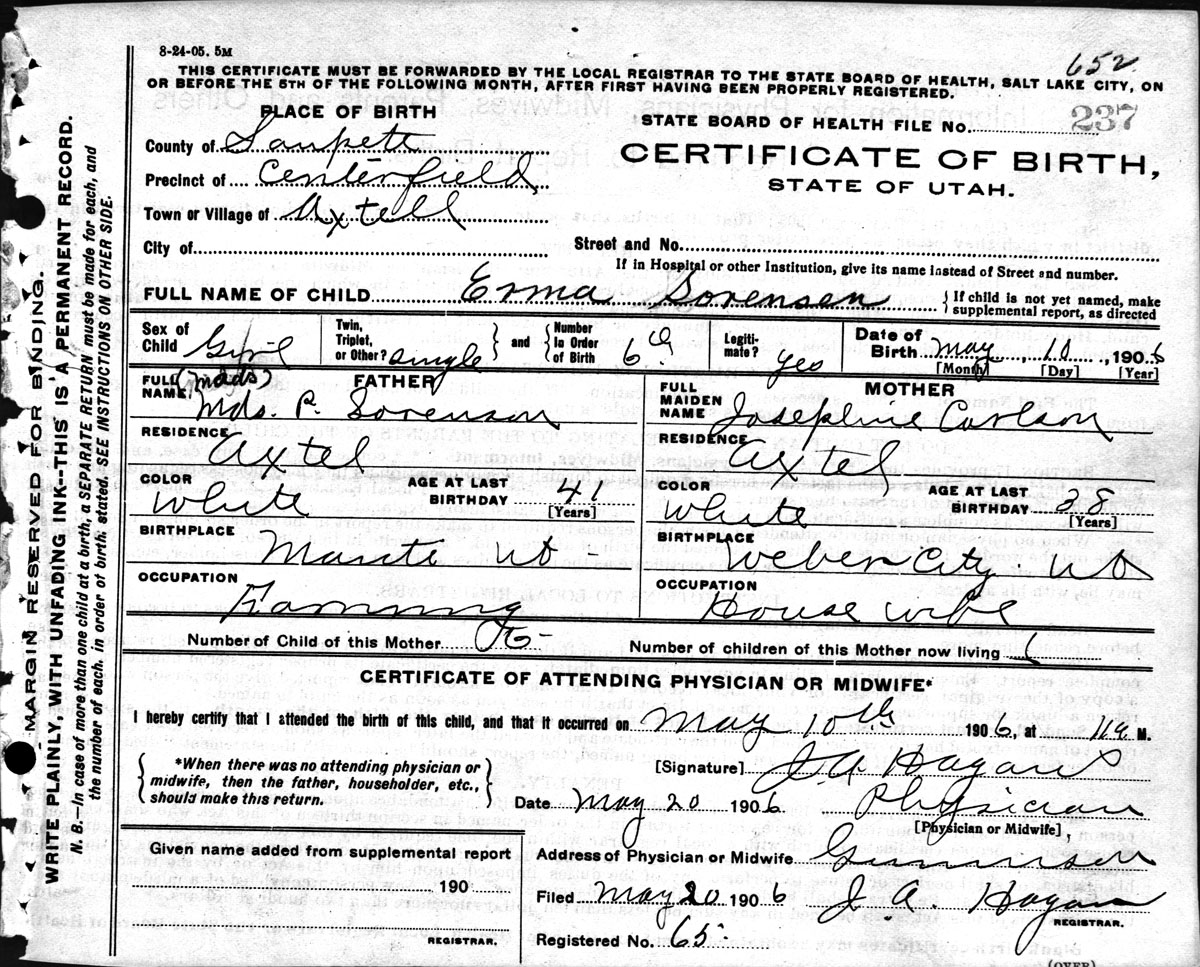 8-24-05. 5M
652
THIS CERTIFICATE MUST BE FORWARDED BY THE LOCAL REGISTRAR TO THE STATE BOARD OF HEALTH, SALT LAKE CITY, ON
OR BEFORE THE 5TH OF THE FOLLOWING MONTH, AFTER FIRST HAVING BEEN PROPERLY REGISTERED.
PLACE OF BIRTH
STATE BOARD OF HEALTH FILE No. 237
County of Sanpete
CERTIFICATE OF BIRTH,
Precinct of Centerfield
STATE OF UTAH.
Town or Village of Axtell
City of
Street and No.
If in Hospital or other Institution, give its name instead of Street and number.
FULL NAME OF CHILD Erma Sorensen
If child is not yet named, make
supplemental report, as directed
Sex of Child Girl
Twin, Triplet, or Other? single
and
Number In Order of Birth 6th
Legiti-mate? yes
Date of Birth May 10, 1906
[Month] [Day] [Year]
FATHER
FULL NAME (Mads)
Mds. P. Sorenson
MOTHER
FULL MAIDEN NAME Josephine Carlson
RESIDENCE Axtel
RESIDENCE Axtel
COLOR White
AGE AT LAST BIRTHDAY 41
[Years]
COLOR White
AGE AT LAST BIRTHDAY 38
[Years]
BIRTHPLACE Manti Ut -
BIRTHPLACE Weber City. Ut
OCCUPATION Farming
OCCUPATION House wife
Number of Child of this Mother
Number of children of this Mother now living
CERTIFICATE OF ATTENDING PHYSICIAN OR MIDWIFE*
I hereby certify that I attended the birth of this child, and that it occurred on May 10th 1906, at 11 a M.
*When there was no attending physician or
midwife, then the father, householder, etc.,
should make this return.
[Signature] J. A. Hagan
Date May 20 1906 Physician
[Physician or Midwife],
Given name added from supplemental report
Address of Physician or Midwife Gunnison
190
Filed May 20 1906 J. A. Hagan
REGISTRAR.
REGISTRAR.
Registered No. 65
(OVER)
MARGIN RESERVED FOR BINDING.
WRITE PLAINLY, WITH UNFADING INK--THIS IS A PERMANENT RECORD.
N. B.—In case of more than one child at a birth, a SEPARATE RETURN must be made for each, and
the number of each, in order of birth, stated. SEE INSTRUCTIONS ON OTHER SIDE.